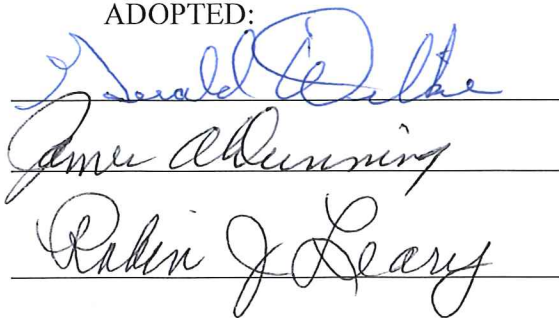 ADOPTED:
Gerald Wilke
James A Dunning
Robin J Leary